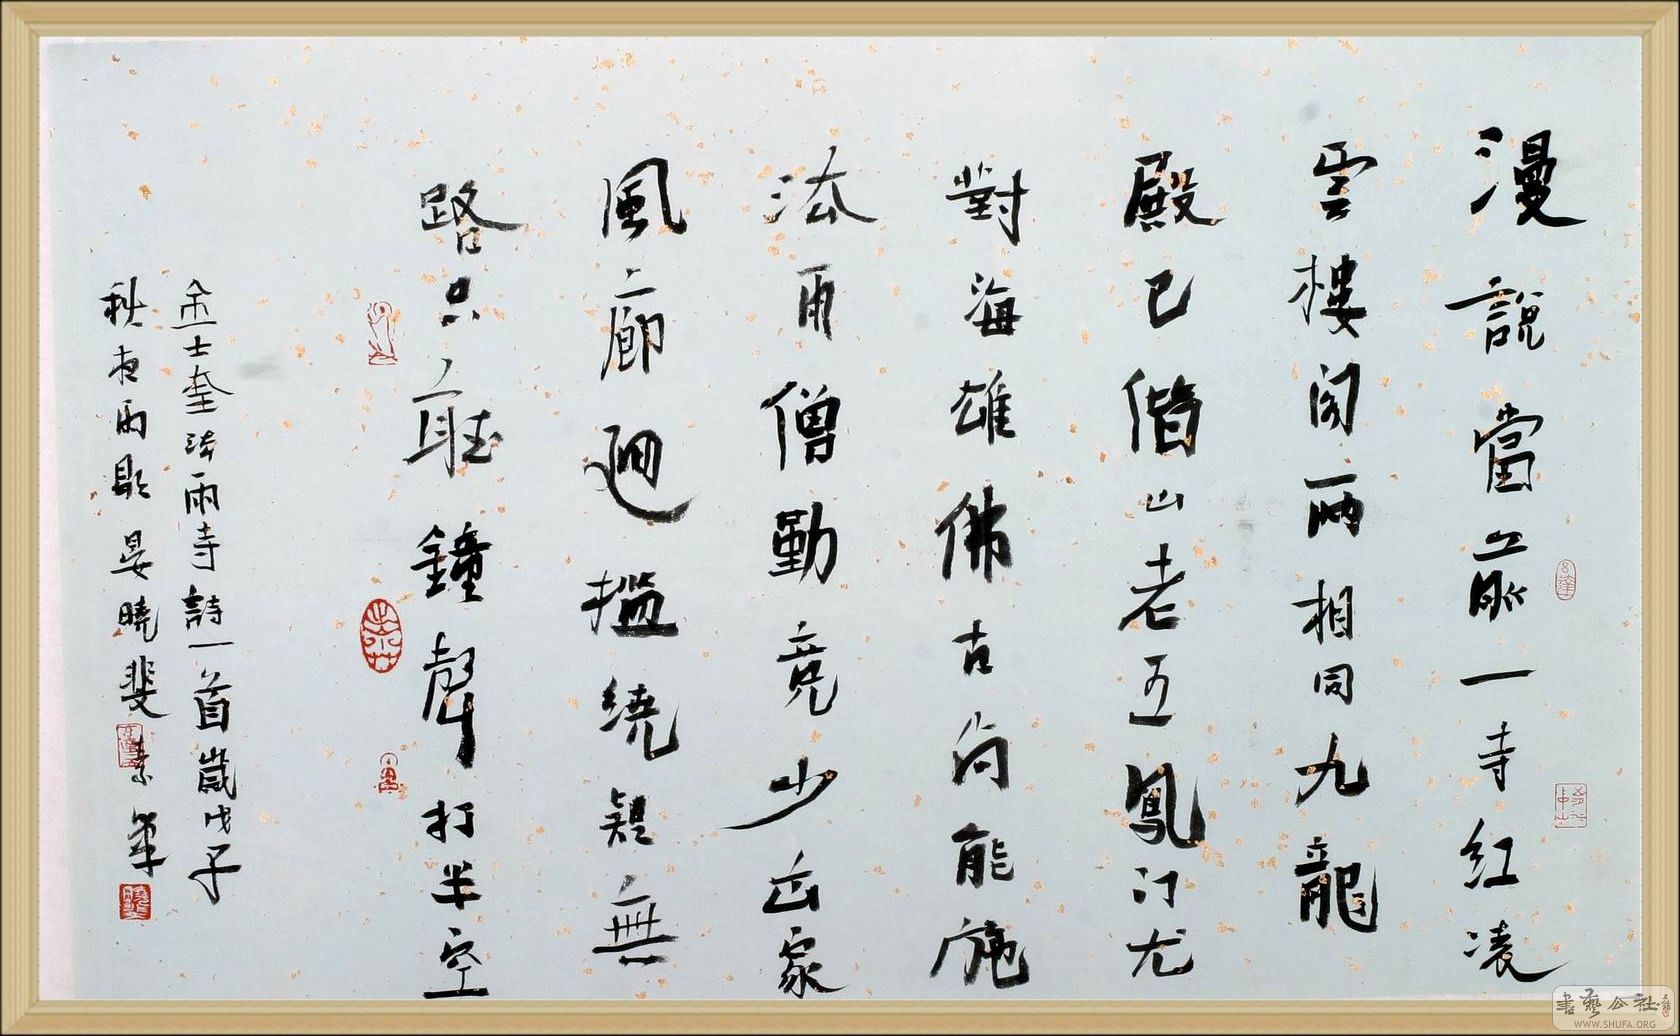 漫說當前一寺紅凌
雲樓閣兩相同九龍
殿已偕山老五鳳汀尤
對海雄佛古尚能施
法雨僧勤竟少出家
風廊迴檻繞疑無
路只聽鐘聲打半空
金士奎法雨寺詩一首歲戊子
秋夜雨歇晏曉斐素筆
書藝公社
WWW.SHUFA.ORG